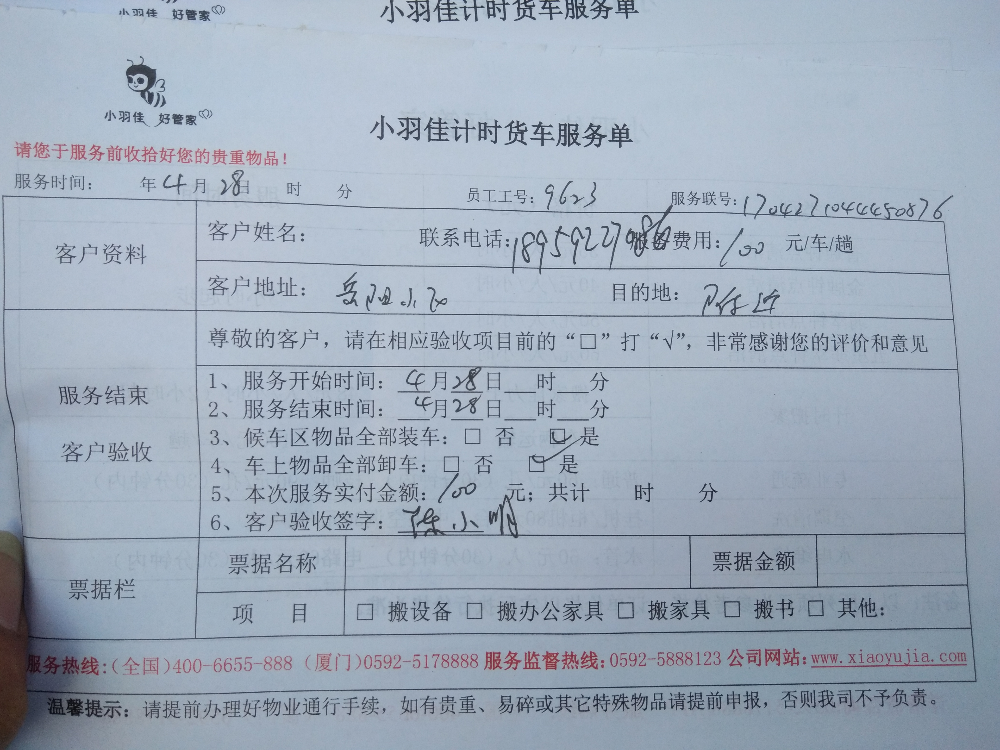 小羽佳 好管家
小羽佳计时货车服务单
小羽佳 好管家
小羽佳计时货车服务单
请您于服务前收拾好您的贵重物品！
服务时间： 年4月28日 时 分 员工工号：9623 服务联号：1704271044450876
客户资料
客户姓名： 联系电话：18959227986 服务费用：100 元/车/趟
客户地址：岳阳小区 目的地：附近
尊敬的客户，请在相应验收项目前的“□”打“√”，非常感谢您的评价和意见
服务结束
客户验收
1、服务开始时间：4月28日 时 分
2、服务结束时间：4月28日 时 分
3、候车区物品全部装车：□ 否 ☑ 是
4、车上物品全部卸车：□ 否 ☑ 是
5、本次服务实付金额：100 元；共计 时 分
6、客户验收签字：陈小明
票据栏
票据名称 票据金额
项 目 □ 搬设备 □ 搬办公家具 □ 搬家具 □ 搬书 □ 其他：
服务热线：（全国）400-6655-888（厦门）0592-5178888 服务监督热线：0592-5888123 公司网站：www.xiaoyujia.com
温馨提示：请提前办理好物业通行手续，如有贵重、易碎或其它特殊物品请提前申报，否则我司不予负责。